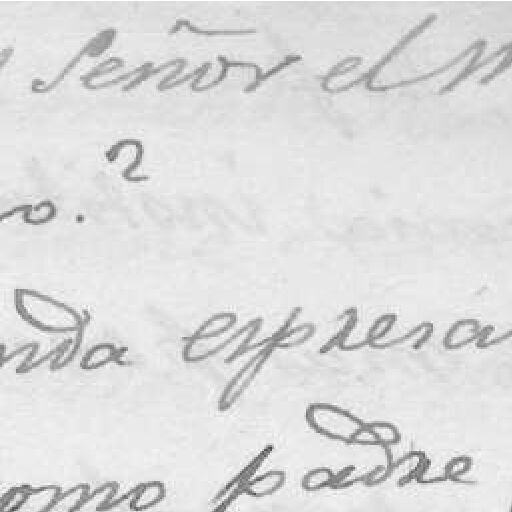 Señor el
2
o.
nda espresa
omo padre